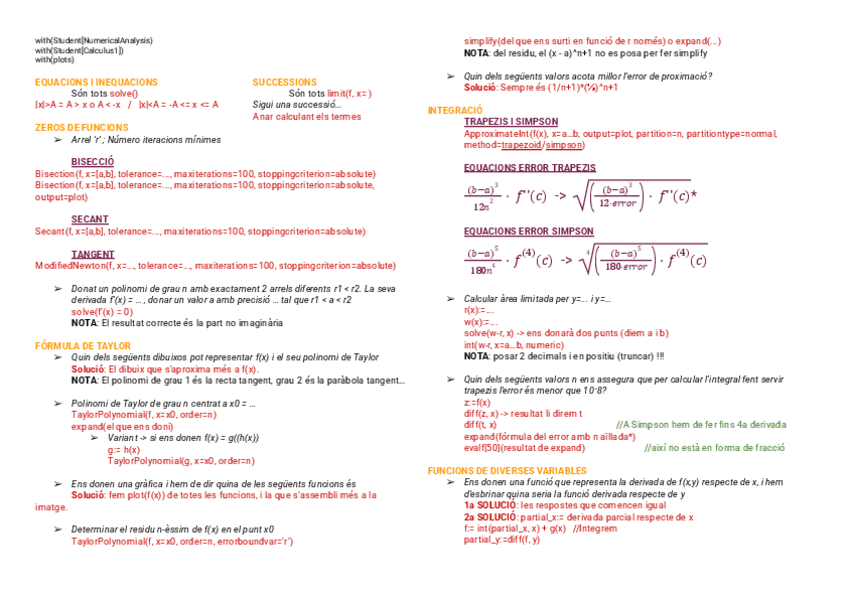 with(Student[NumericalAnalysis)
with(Student[Calculus1])
with(plots)
EQUACIONS I INEQUACIONS
Són tots solve()
|x|>A = A > x o A < -x / |x|<A = -A <= x <= A
SUCCESSIONS
Són tots limit(f, x= )
Sigui una successió...
Anar calculant els termes
ZEROS DE FUNCIONS
➢ Arrel 'r' ; Número iteracions mínimes
BISECCIÓ
Bisection(f, x=[a,b], tolerance=..., maxiterations=100, stoppingcriterion=absolute)
Bisection(f, x=[a,b], tolerance=..., maxiterations=100, stoppingcriterion=absolute,
output=plot)
SECANT
Secant(f, x=[a,b], tolerance=..., maxiterations=100, stoppingcriterion=absolute)
TANGENT
ModifiedNewton(f, x=..., tolerance=..., maxiterations=100, stoppingcriterion=absolute)
➢ Donat un polinomi de grau n amb exactament 2 arrels diferents r1 < r2. La seva
derivada f'(x) = ... , donar un valor a amb precisió ... tal que r1 < a < r2
solve(f'(x) = 0)
NOTA: El resultat correcte és la part no imaginària
FÓRMULA DE TAYLOR
➢ Quin dels següents dibuixos pot representar f(x) i el seu polinomi de Taylor
Solució: El dibuix que s'aproxima més a f(x).
NOTA: El polinomi de grau 1 és la recta tangent, grau 2 és la paràbola tangent...
➢ Polinomi de Taylor de grau n centrat a x0 = ...
TaylorPolynomial(f, x=x0, order=n)
expand(el que ens doni)
➢ Variant -> si ens donen f(x) = g((h(x))
g:= h(x)
TaylorPolynomial(g, x=x0, order=n)
➢ Ens donen una gràfica i hem de dir quina de les següents funcions és
Solució: fem plot(f(x)) de totes les funcions, i la que s'assembli més a la
imatge.
➢ Determinar el residu n-èssim de f(x) en el punt x0
TaylorPolynomial(f, x=x0, order=n, errorboundvar='r')
simplify(del que ens surti en funció de r només) o expand(...)
NOTA: del residu, el (x - a)^n+1 no es posa per fer simplify
➢ Quin dels següents valors acota millor l'error de proximació?
Solució: Sempre és (1/n+1)*(⅓)^n+1
INTEGRACIÓ
TRAPEZIS I SIMPSON
ApproximateInt(f(x), x=a...b, output=plot, partition=n, partitiontype=normal,
method=trapezoid/simpson)
EQUACIONS ERROR TRAPEZIS
(b−a)³/12n² · f''(c) -> √((b−a)³/12·error) · f''(c)*
EQUACIONS ERROR SIMPSON
(b−a)⁵/180n⁴ · f⁽⁴⁾(c) -> ⁴√((b−a)⁵/180·error) · f⁽⁴⁾(c)
➢ Calcular àrea limitada per y=... i y=...
r(x):=...
w(x):=...
solve(w-r, x) -> ens donarà dos punts (diem a i b)
int(w-r, x=a...b, numeric)
NOTA: posar 2 decimals i en positiu (truncar) !!!
➢ Quin dels següents valors n ens assegura que per calcular l'integral fent servir
trapezis l'error és menor que 10⁻8?
z:=f(x)
diff(z, x) -> resultat li direm t
diff(t, x) //A Simpson hem de fer fins 4a derivada
expand(fórmula del error amb n aïllada*)
evalf[50](resultat de expand) //així no està en forma de fracció
FUNCIONS DE DIVERSES VARIABLES
➢ Ens donen una funció que representa la derivada de f(x,y) respecte de x, i hem
d'esbrinar quina seria la funció derivada respecte de y
1a SOLUCIÓ: les respostes que comencen igual
2a SOLUCIÓ: partial_x:= derivada parcial respecte de x
f:= int(partial_x, x) + g(x) //Integrem
partial_y:=diff(f, y)